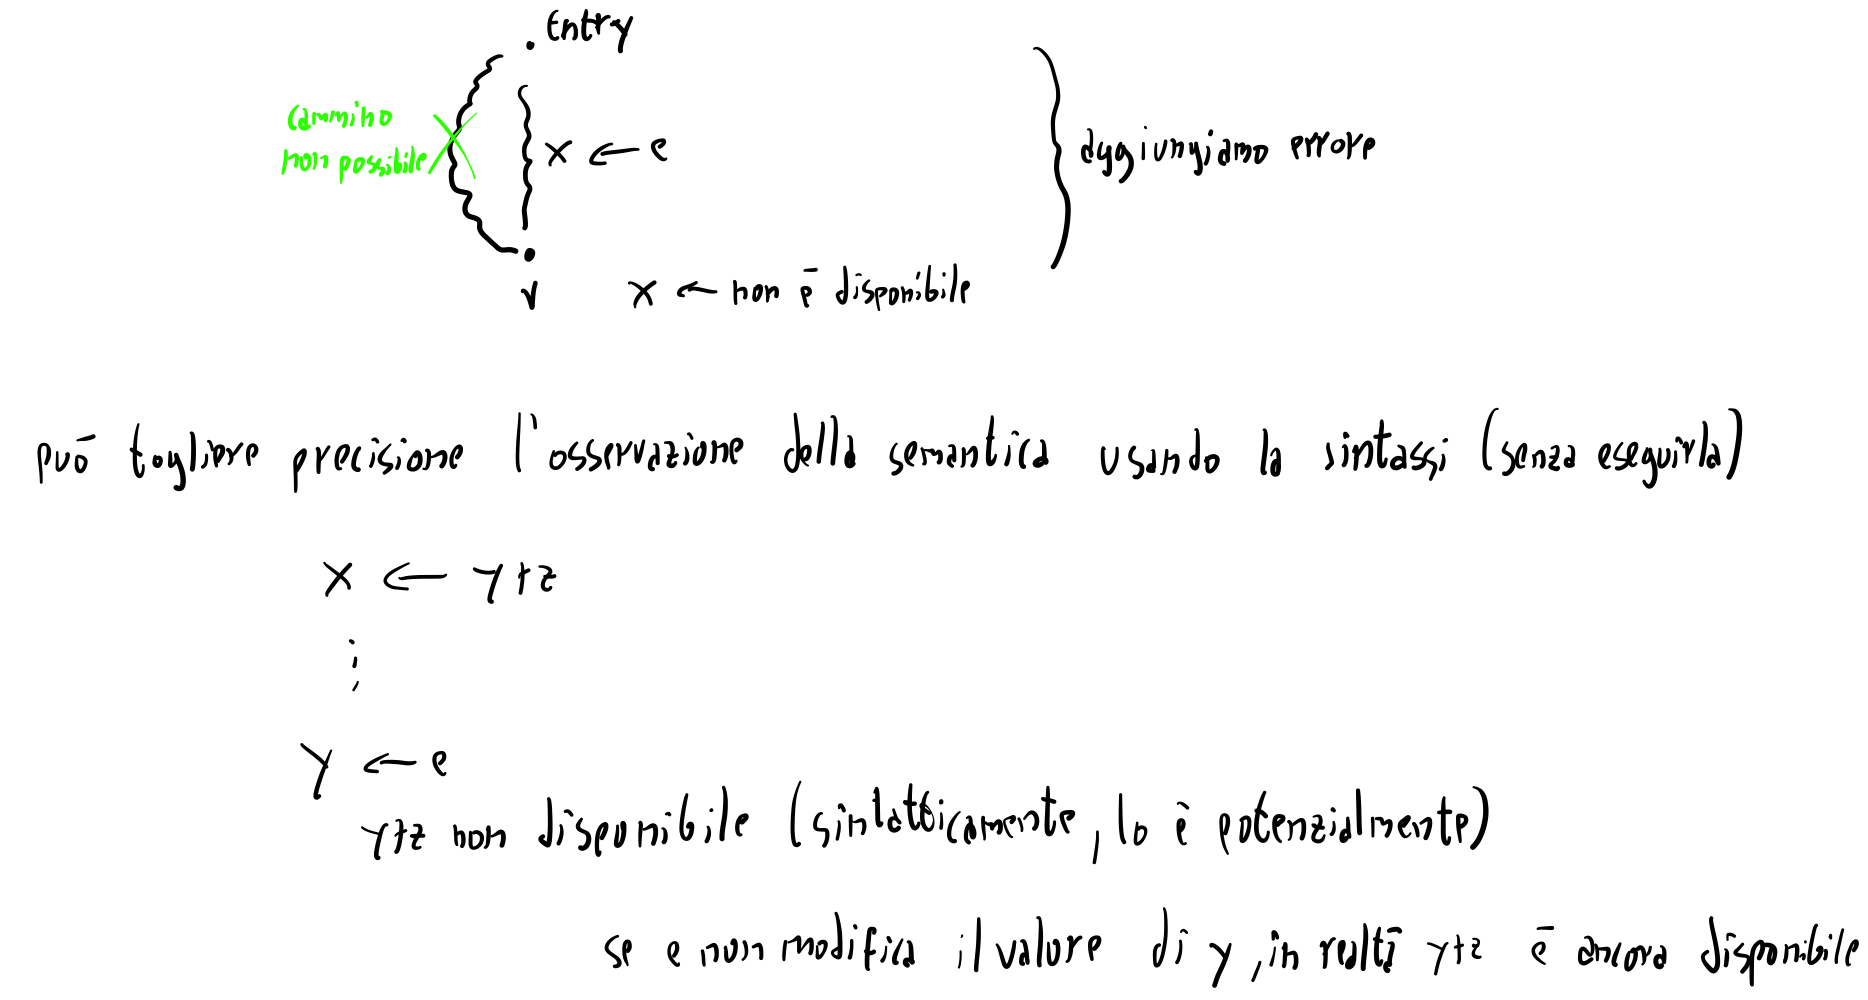 . Entry
cammino
non possibile
x ← e
aggiungiamo errore
v
x ← non è disponibile
può togliere precisione l'osservazione della semantica usando la sintassi (senza eseguirla)
x ← y+z
⋮
y ← e
y+z non disponibile (sintatticamente, lo è potenzialmente)
se e non modifica il valore di y, in realtà y+z è ancora disponibile